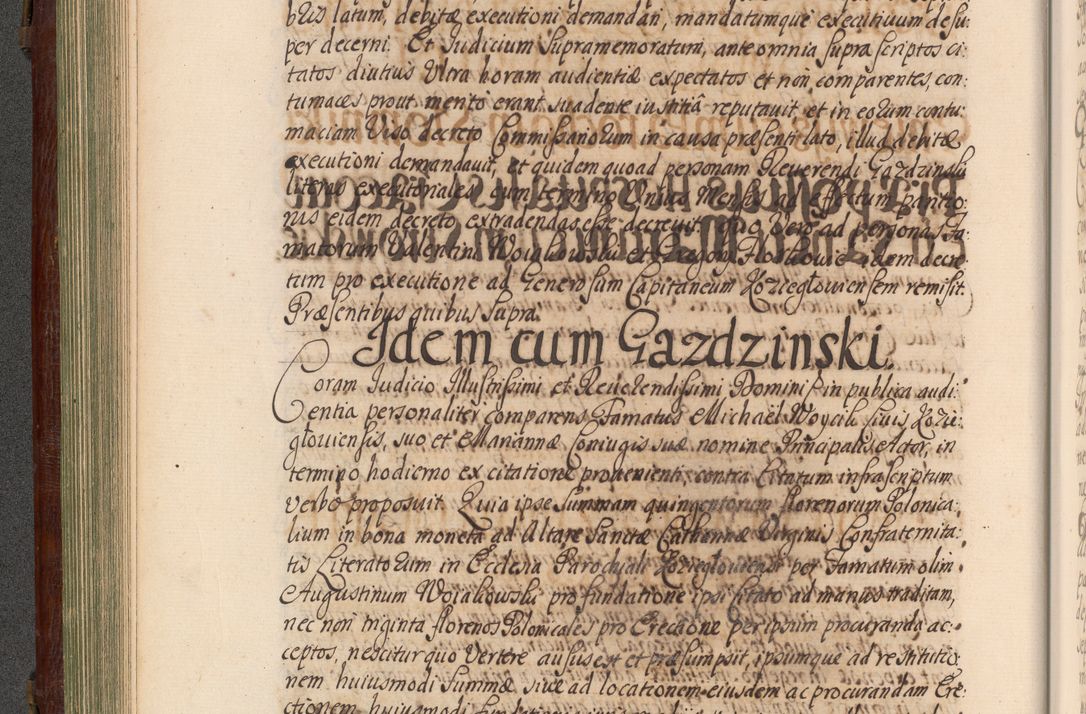 bus latum, debitæ executioni demandari, mandatumque executiuum desu:
per decerni. Et Iudicium Supramemoratum, ante omnia suprascriptos ci:
tatos diutius Ultra horam audientiæ expectatos et non comparentes, con:
tumaces prout merito erant suadente iustitiâ reputauit, et in eorum contu:
maciam Viso decreto Commissariorum in causa præsenti lato, illud debitæ
executioni demandauit, et quidem quoad personam Reuerendi Gazdzinski
literas executoriales cum termino Unius Mensis ad effectum paritio:
nis eidem decreto extradendas esse decreuit. quo Vero ad personas Fa:
matorum Valentini Woialkowski et Gregorij idem decre:
tum pro executione ad Generosum Capitaneum Kozieglouiensem remisit.
Præsentibus quibus supra.
Idem cum Gazdzinski.
Coram Iudicio Illustrissimi et Reuerendissimi Domini in publica audi:
entia personaliter comparens Famatus Michaël Woycik ciuis Kozie:
glouiensis, suo et Mariannæ Coniugis suæ nomine Principalis Actor, in
termino hodierno ex citatione proueniente, contra Citatum infrascriptum
verbo proposuit. Quia ipse Summam quingentorum florenorum Polonica:
lium in bona moneta ad Altare Sanctæ Catherinæ Virginis Confraternita:
tis Literatorum in Ecclesia Parochiali Kozieglouiensi per Famatum olim
Augustinum Woialkowski pro fundatione ipsi citato ad manus traditam,
nec non triginta florenos Polonicales pro Erectione per ipsum procuranda ac:
ceptos, nescitur quo Vertere ausus est et præsumpsit, ipsumque ad restitutio:
nem huiusmodi Summæ siue ad locationem eiusdem ac procurandam Ere:
ctionem huiusmodi